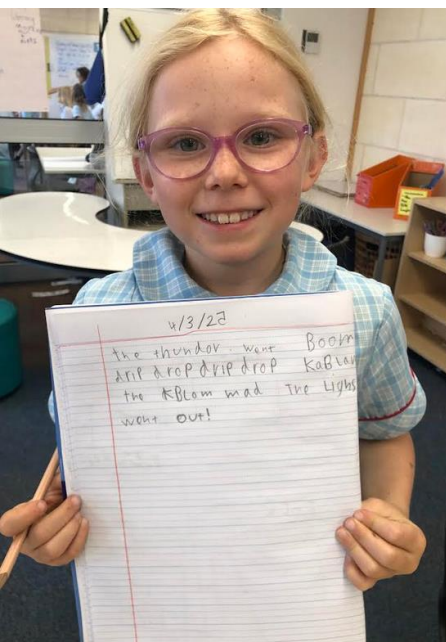 4/3/25
the thundor went Boom
drip drop drip drop KaBlam
the KBLom mad The Lighs
went out!